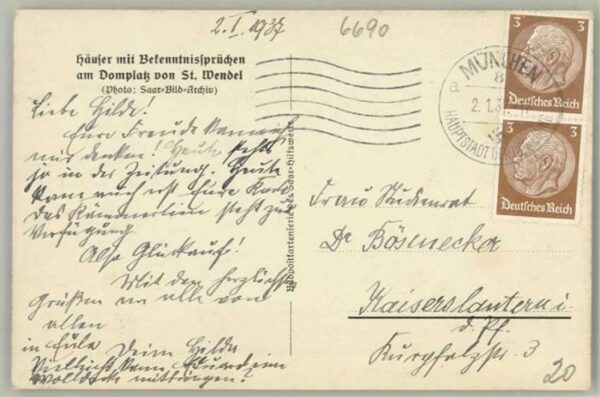 2.I.1937
6690
Häuser mit Bekenntnissprüchen
am Domplatz von St. Wendel
(Photo: Saar-Bild-Archiv)
Liebe Hilde!
Eure Freude kann ich
mir denken! Heute steht's
ja in der Zeitung. Heute
kam auch erst Eure Karte.
Das Kämmerlein steht zur
Verfügung.
Also Glückauf!
Mit den herzlichsten
Grüßen an alle von
allen
in Eile Deine Hilde
Vielleicht kann Eduard ein
Wolldecke mitbringen?
Bildpostkartenserie des Saar-Hilfswerk
3 3
Deutsches Reich
3 3
Deutsches Reich
MÜNCHEN
8
a
2.1.3
HAUPTSTADT
Frau Studienrat
Dr Bösnecker
Kaiserslautern i.
d. Pf.
Kurpfalzstr. 3
20